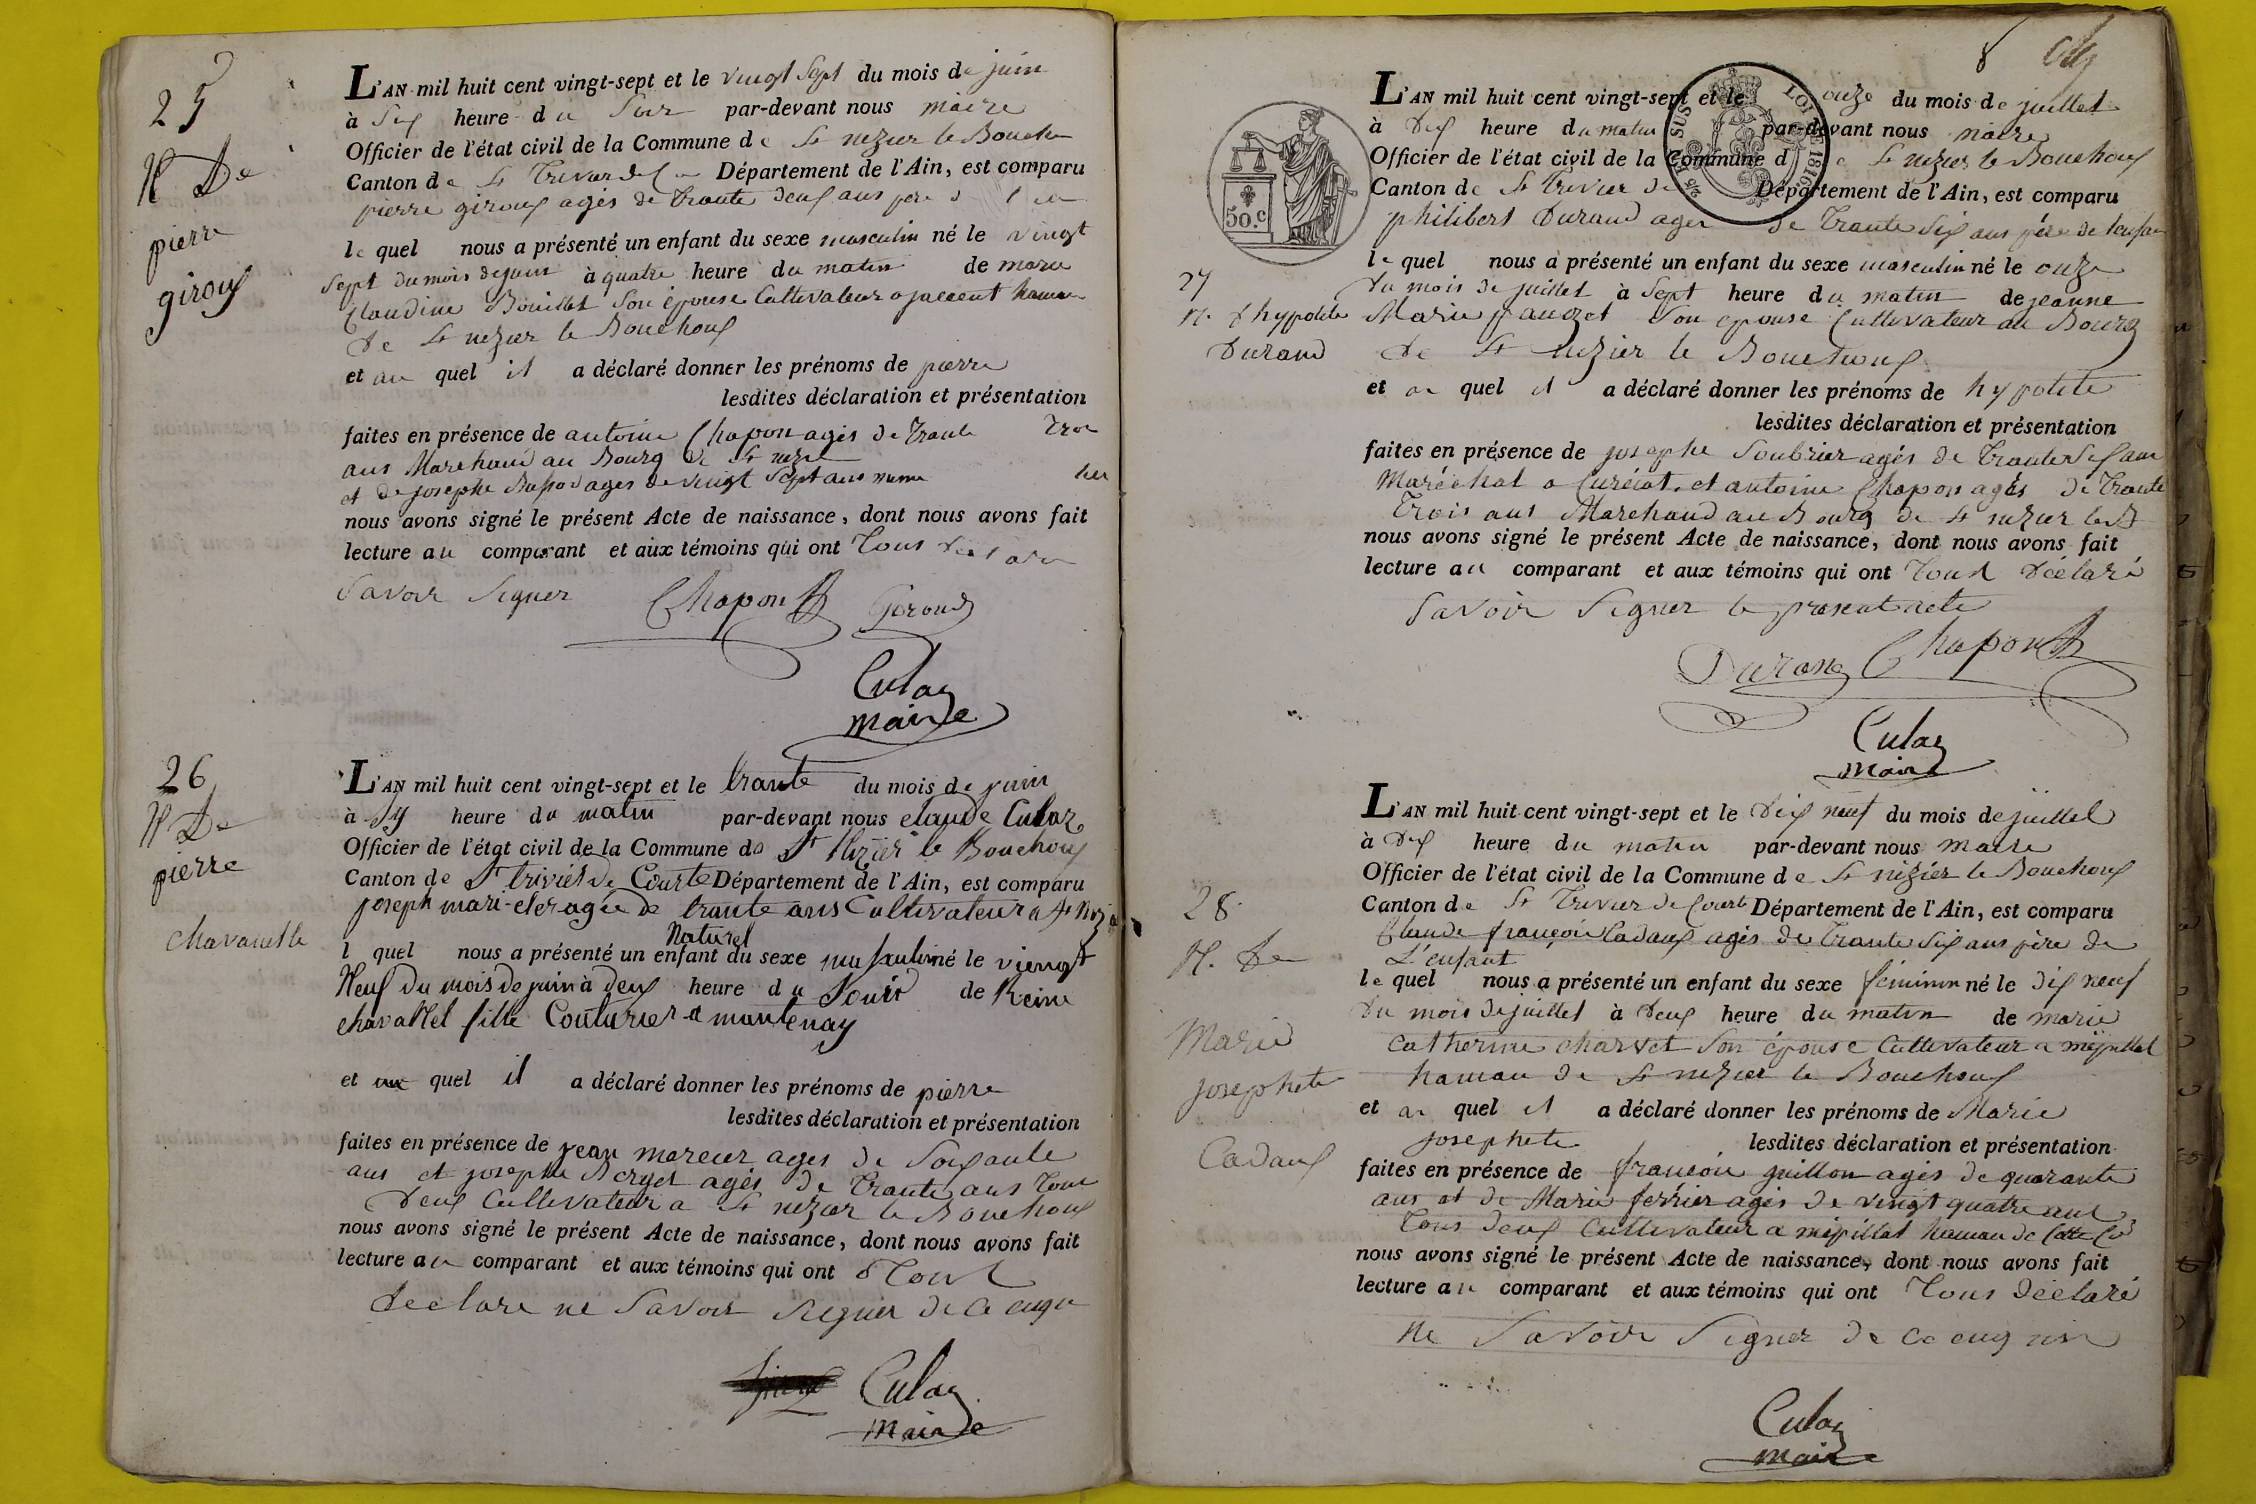 25
N De
pierre
giroux
L'AN mil huit cent vingt-sept et le vingt Sept du mois de juin
à Six heure du Soir par-devant nous maire
Officier de l'état civil de la Commune de St nizier le Bouchu
Canton de St Trivier de Département de l'Ain, est comparu
pierre giroux agés de trante deux ans pere
le quel nous a présenté un enfant du sexe masculin né le vingt
Sept du mois de juin à quatre heure du matin de marie
Claudine Bouillet Son épouse Cultivateur hamau
de St nizier le Bouchoux
et au quel il a déclaré donner les prénoms de pierre
lesdites déclaration et présentation
faites en présence de antoine Chapon agés de trante
ans Marchand au Bourg de St nizi
et de josephe agés de vingt Sept ans
nous avons signé le présent Acte de naissance, dont nous avons fait
lecture au comparant et aux témoins qui ont Tous
Savoir Signer Chapon Giroud
Culaz
maire
26
N De
pierre
chavanelle
L'AN mil huit cent vingt-sept et le trante du mois de juin
à Sis heure du matin par-devant nous claude Culaz
Officier de l'état civil de la Commune de St Nizier le Bouchoux
Canton de St triviér De Courte Département de l'Ain, est comparu
joseph mari-cler agée de trante ans Cultivateur a St Nizié
Naturel
l quel nous a présenté un enfant du sexe masculin né le viengt
Neuf Du mois de juin à deux heure du Souir de Reine
chavallel fille Couturier a mantenay
et au quel il a déclaré donner les prénoms de pierre
lesdites déclaration et présentation
faites en présence de jean mercier ages de Soixante
ans et josephe Berget agés de trante ans tous
deux Cultivateur a St nizier le Bouchoux
nous avons signé le présent Acte de naissance, dont nous avons fait
lecture au comparant et aux témoins qui ont Tous
declare ne Savoir Signer de ce enqu
Culaz
maire
8
2/5 EN SUS
LOI DE 1816
50.c
27
N. d hypolite
Durand
L'AN mil huit cent vingt-sept et le onze du mois de juillet
à dix heure du matin par-devant nous maire
Officier de l'état civil de la Commune de St nizier le Bouchoux
Canton de St Trivier de Département de l'Ain, est comparu
philibert Durand ager de Trante Six ans pére de lenfan
le quel nous a présenté un enfant du sexe masculin né le onze
Du mois de juillet à Sept heure du matin de jeanne
Marie pauget Son épouse Cultivateur au Bourg
de St nizier le Bouchoux
et au quel il a déclaré donner les prénoms de hypolite
lesdites déclaration et présentation
faites en présence de josephe Soubrier agés de Trante Six ans
Maréchal a Curciat, et antoine Chapon agés de Trante
Trois ans Marchand au Bourg de St nizier le B
nous avons signé le présent Acte de naissance, dont nous avons fait
lecture au comparant et aux témoins qui ont Tous Déclaré
Savoir Signer le present acte
Durand Chapon
Culaz
maire
28
N. De
Marie
josephete
Cadaux
L'AN mil huit cent vingt-sept et le Dix neuf du mois de juillet
à Dix heure du matin par-devant nous maire
Officier de l'état civil de la Commune de St niziér le Bouchoux
Canton de St Trivier de Courte Département de l'Ain, est comparu
Claude françoie Cadaux agés de trante Six ans père de
L'enfant
le quel nous a présenté un enfant du sexe féminin né le dix neuf
Du mois de juillet à Deux heure du matin de marie
Catherine charvet Son épouse Cultivateur a mépillat
hamau de St nizier le Bouchoux
et au quel il a déclaré donner les prénoms de Marie
josephete lesdites déclaration et présentation
faites en présence de françoie guillon agés de quarante
ans et de Marie ferrier agés de vingt quatre ans
Tous deux Cultivateur a mépillat hamau de Cette Co
nous avons signé le présent Acte de naissance, dont nous avons fait
lecture au comparant et aux témoins qui ont Tous Déclaré
Ne Savoir Signer de ce enquin
Culaz
maire